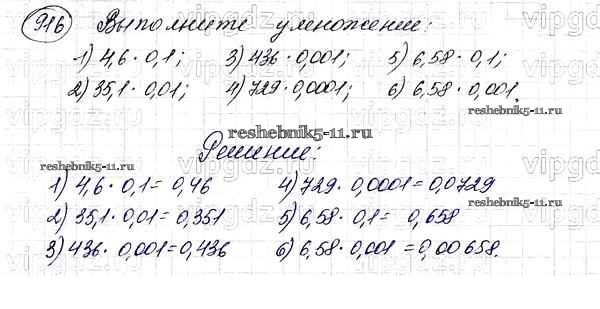 916 Выполните умножение:
1) 4,6 · 0,1; 3) 436 · 0,001; 5) 6,58 · 0,1;
2) 35,1 · 0,01; 4) 729 · 0,0001; 6) 6,58 · 0,001.
reshebnik5-11.ru
reshebnik5-11.ru
Решение:
reshebnik5-11.ru
1) 4,6 · 0,1 = 0,46 4) 729 · 0,0001 = 0,0729
reshebnik5-11.ru
2) 35,1 · 0,01 = 0,351 5) 6,58 · 0,1 = 0,658
3) 436 · 0,001 = 0,436 6) 6,58 · 0,001 = 0,00658.